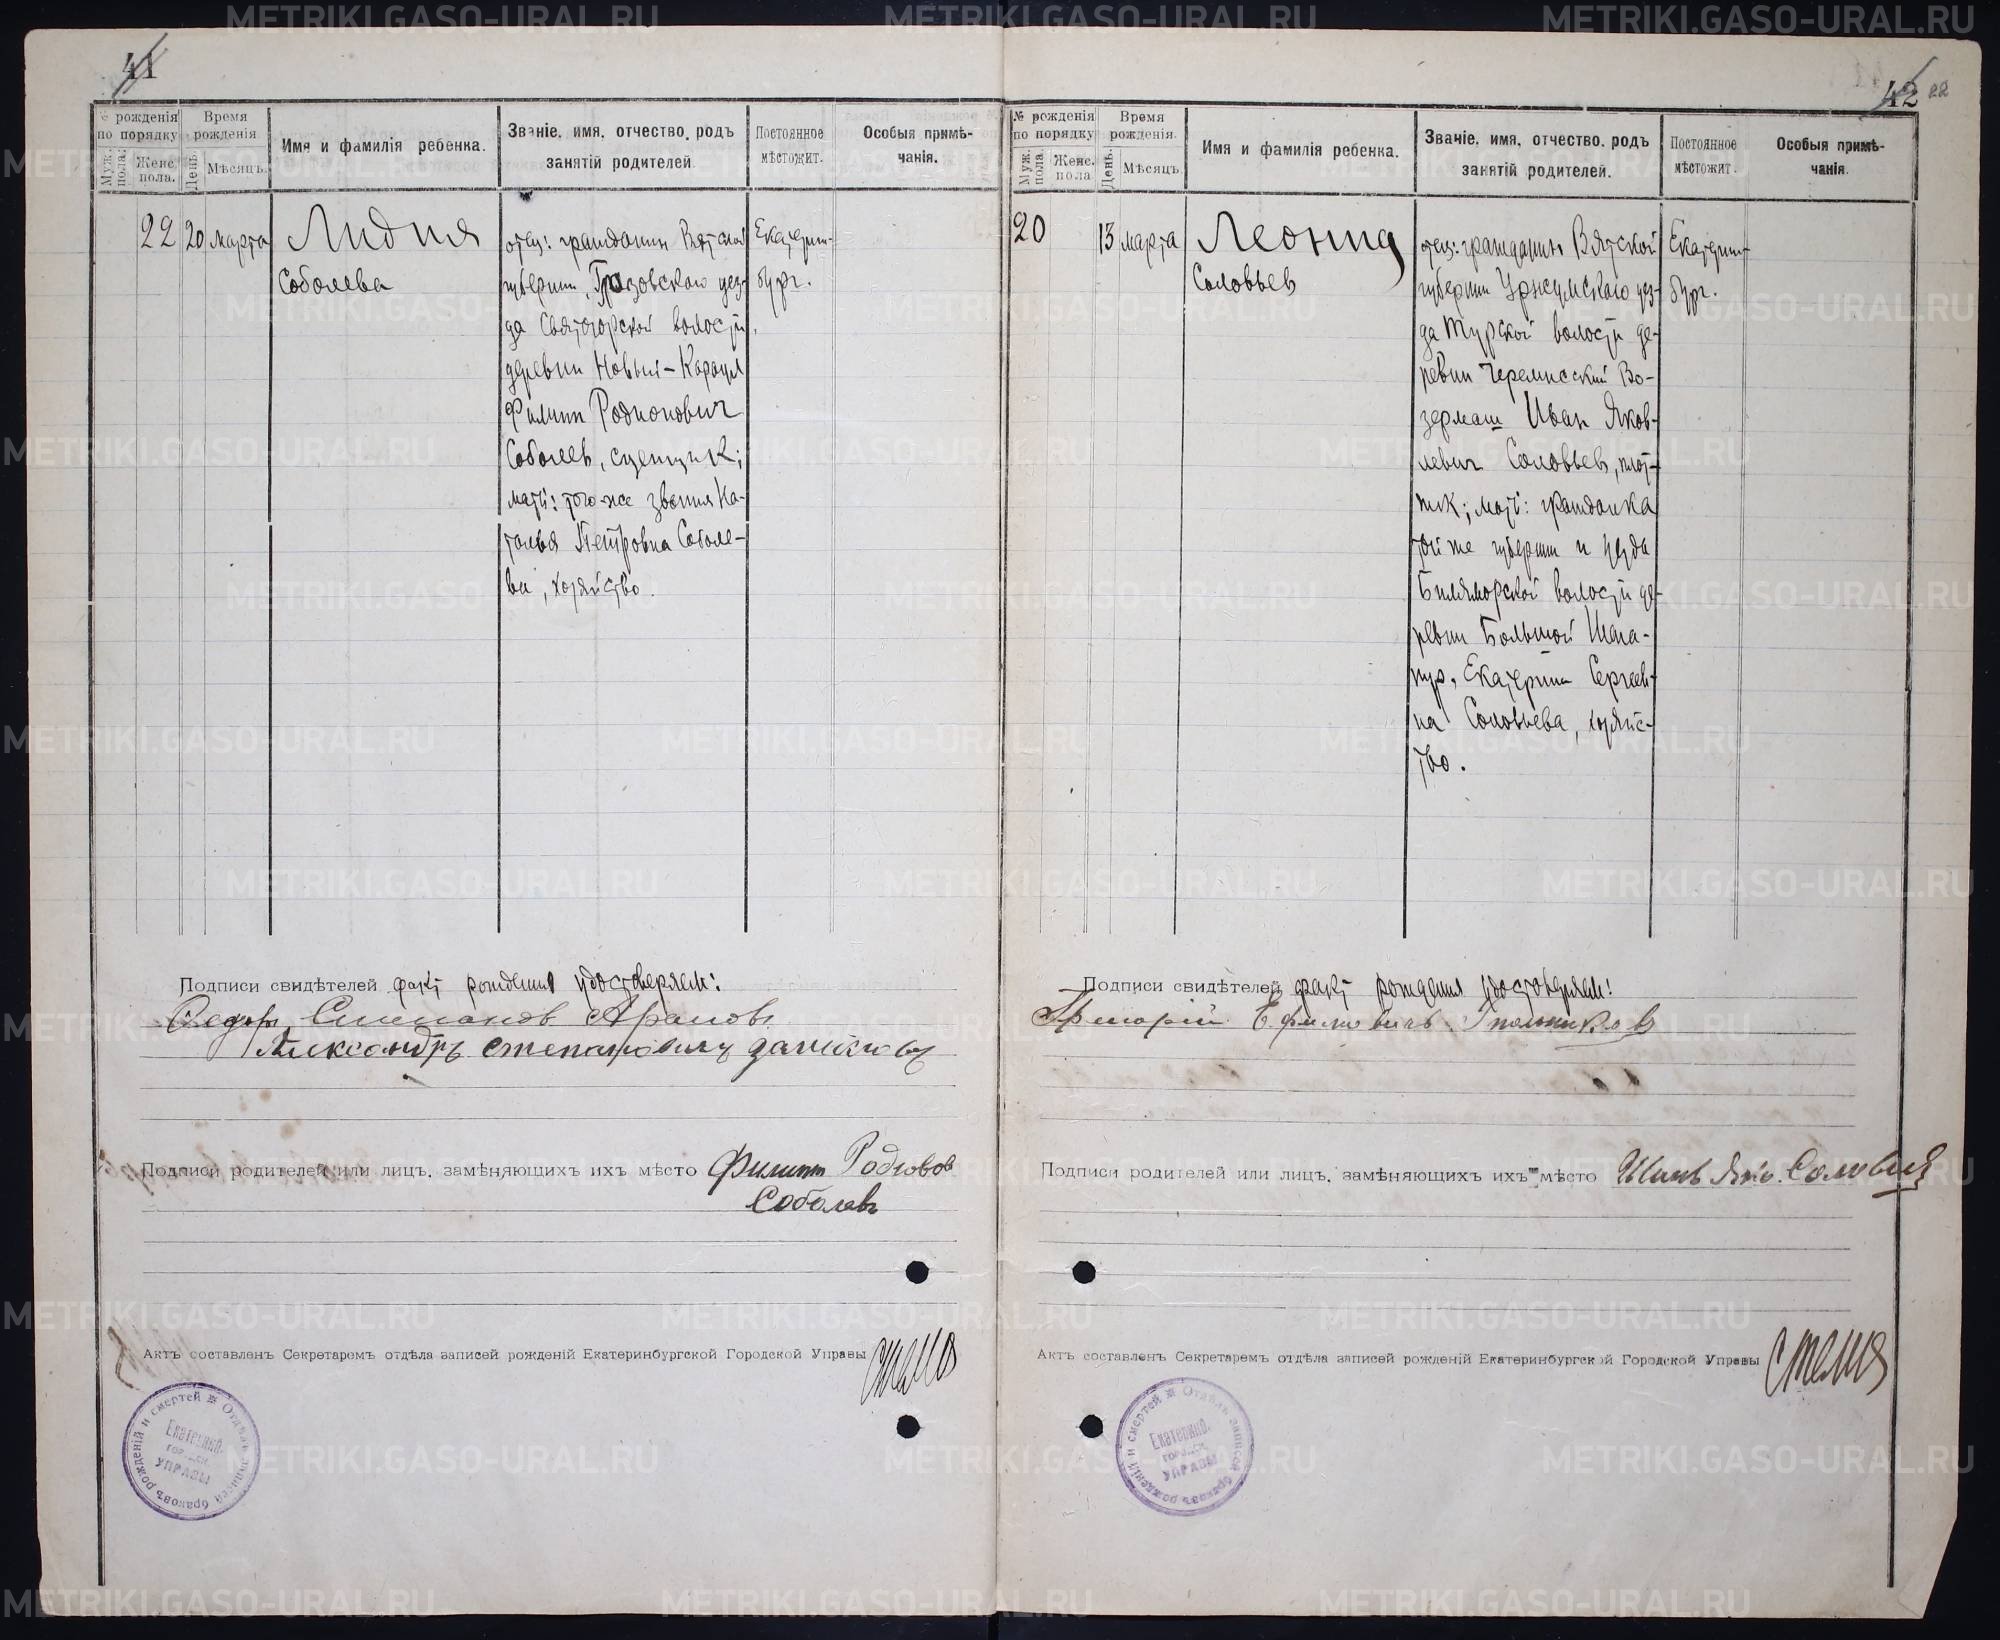 41
№ рожденія по порядку
Муж. пола.
Женс. пола.
Время рожденія
День.
Мѣсяцъ.
Имя и фамилія ребенка.
Званіе, имя, отчество, родъ занятій родителей.
Постоянное мѣстожит.
Особыя примѣчанія.
22
20
марта
Лидия
Соболева
отец: гражданин Вятской
губернии, Глазовского уез-
да Святогорской волости
деревни Новый-Караул
Филипп Родионович
Соболев, сцепщик;
мать: того-же звания На-
талья Петровна Соболе-
ва, хозяйство.
Екатерин-
бург.
Подписи свидѣтелей факт рождения удостоверяем:
Федор Степанов Арапов
Александръ Степановичъ
Подписи родителей или лицъ, замѣняющихъ ихъ мѣсто Филипп Родионов
Соболевъ
Актъ составленъ Секретаремъ отдѣла записей рожденій Екатеринбургской Городской Управы
Отдѣлъ записей браковъ рожденій и смертей
Екатеринб.
городск.
УПРАВЫ
42
22
№ рожденія по порядку
Муж. пола.
Женс. пола
Время рожденія.
День.
Мѣсяцъ
Имя и фамилія ребенка.
Званіе, имя, отчество, родъ занятій родителей.
Постоянное мѣстожит.
Особыя примѣчанія.
20
13
марта
Леонид
Соловьев
отец: гражданин Вятской
губернии Уржумского уез-
да Турской волости де-
ревни Черемисский Во-
зермаш Иван Яков-
левич Соловьев, плот-
ник; мать: гражданка
той же губернии и уезда
Биляморской волости де-
ревни Большой Шага-
нур, Екатерина Сергеев-
на Соловьева, хозяйс-
тво.
Екатерин-
бург.
Подписи свидѣтелей факт рождения удостоверяем:
Григорій Ефимовичъ
Подписи родителей или лицъ, замѣняющихъ ихъ мѣсто Иванъ Яко. Соловьев
Актъ составленъ Секретаремъ отдѣла записей рожденій Екатеринбургской Городской Управы
Отдѣлъ записей браковъ рожденій и смертей
Екатеринб.
городск.
УПРАВЫ
METRIKI.GASO-URAL.RU